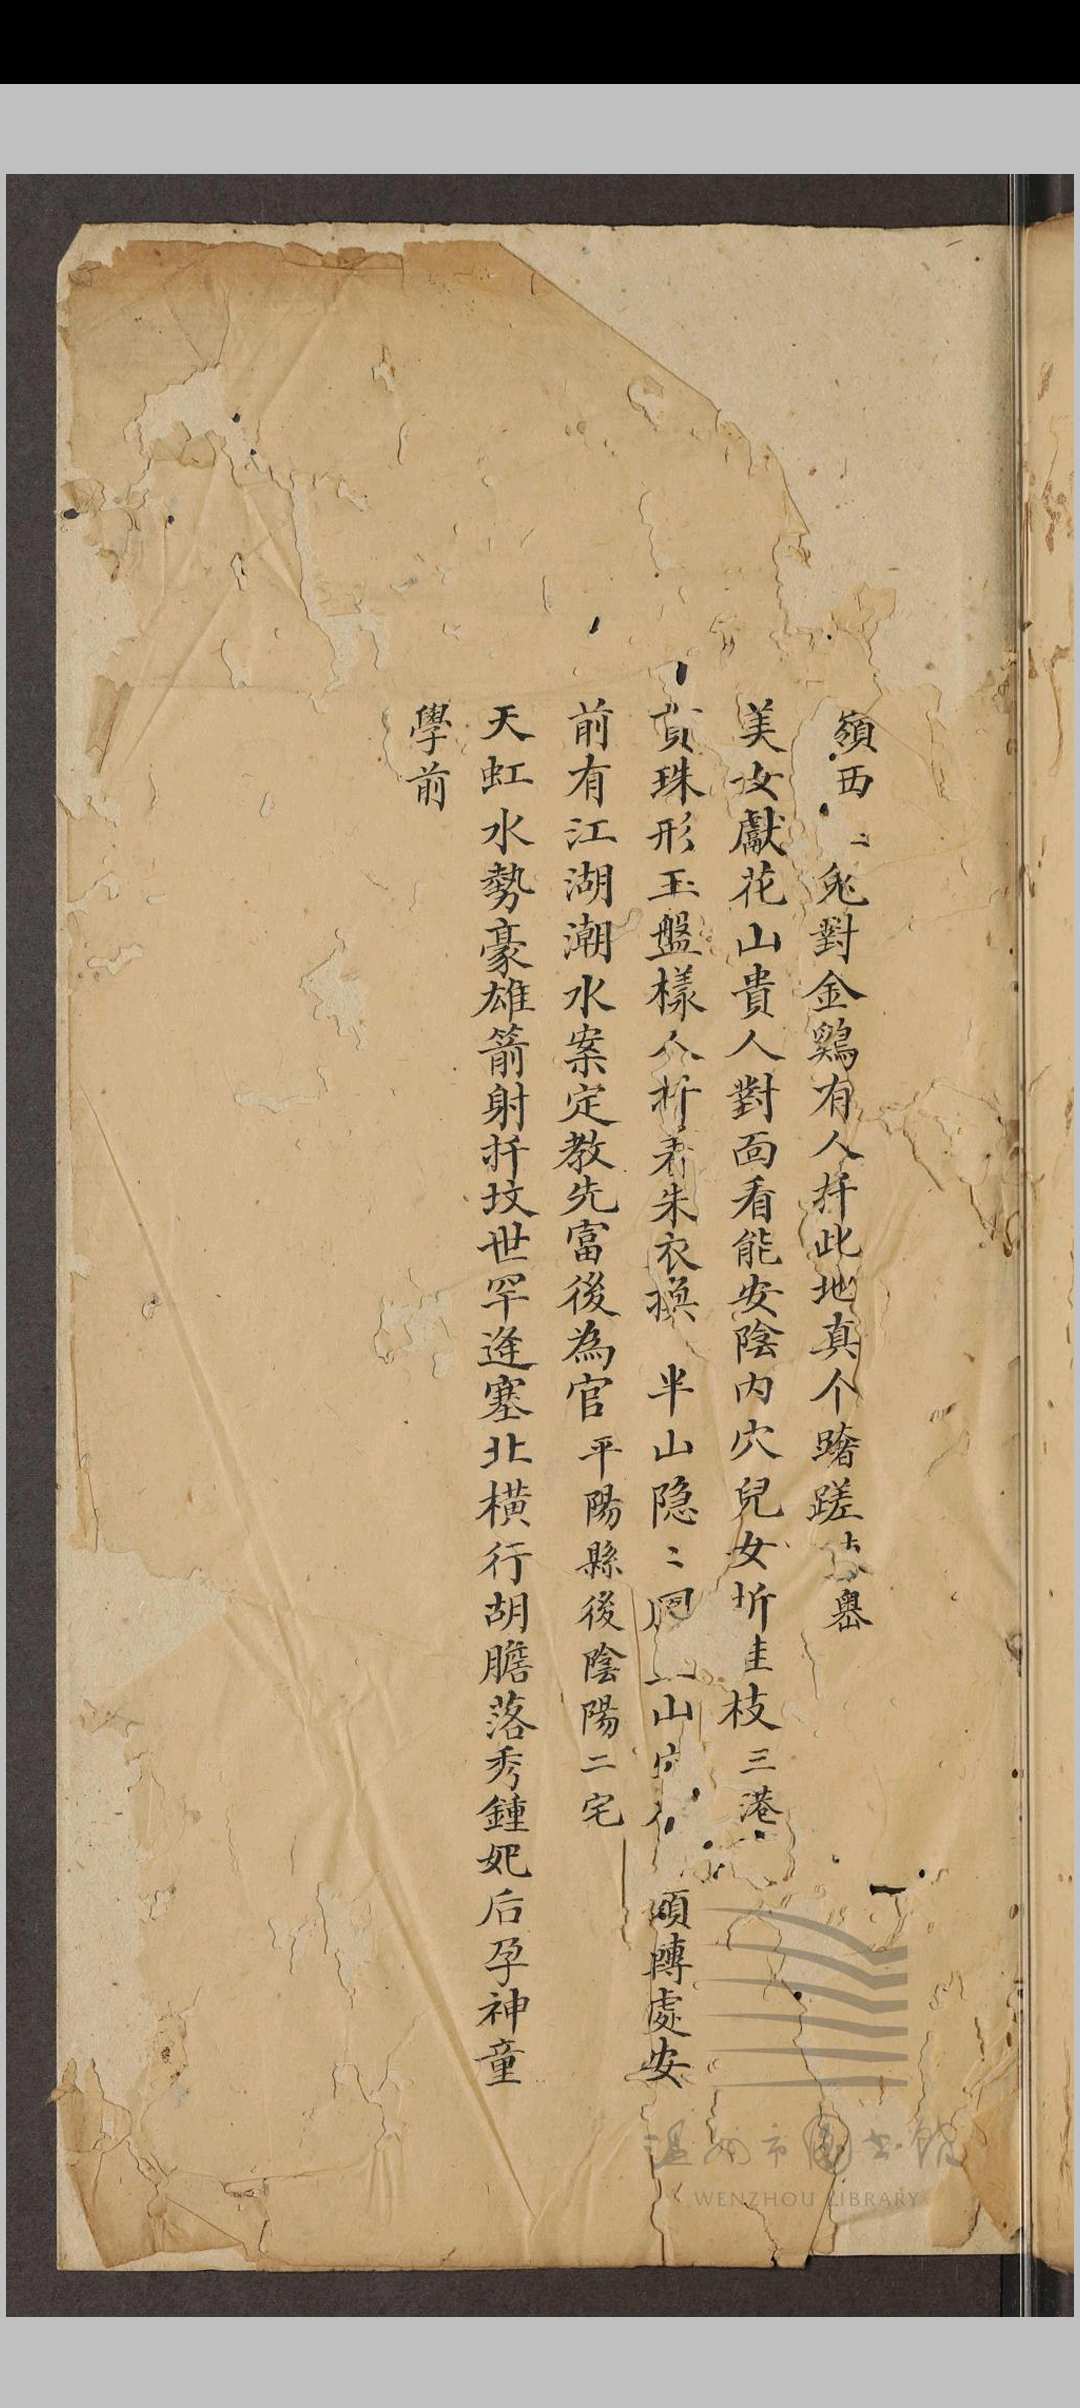 嶺西〻兔對金鷄有人扦此地真个蹊蹺 嶴
美女獻花山貴人對面看能安陰内穴兒女折圭枝三港
貢珠形玉盤樣人扦着朱衣換 半山隐〻 山 頭轉處安
前有江湖潮水案定教先富後為官平陽縣後陰陽二宅
天虹水勢豪雄箭射扦坟世罕逢塞北横行胡膽落秀鍾妃后孕神童
學前
温州市圖書館
WENZHOU LIBRARY